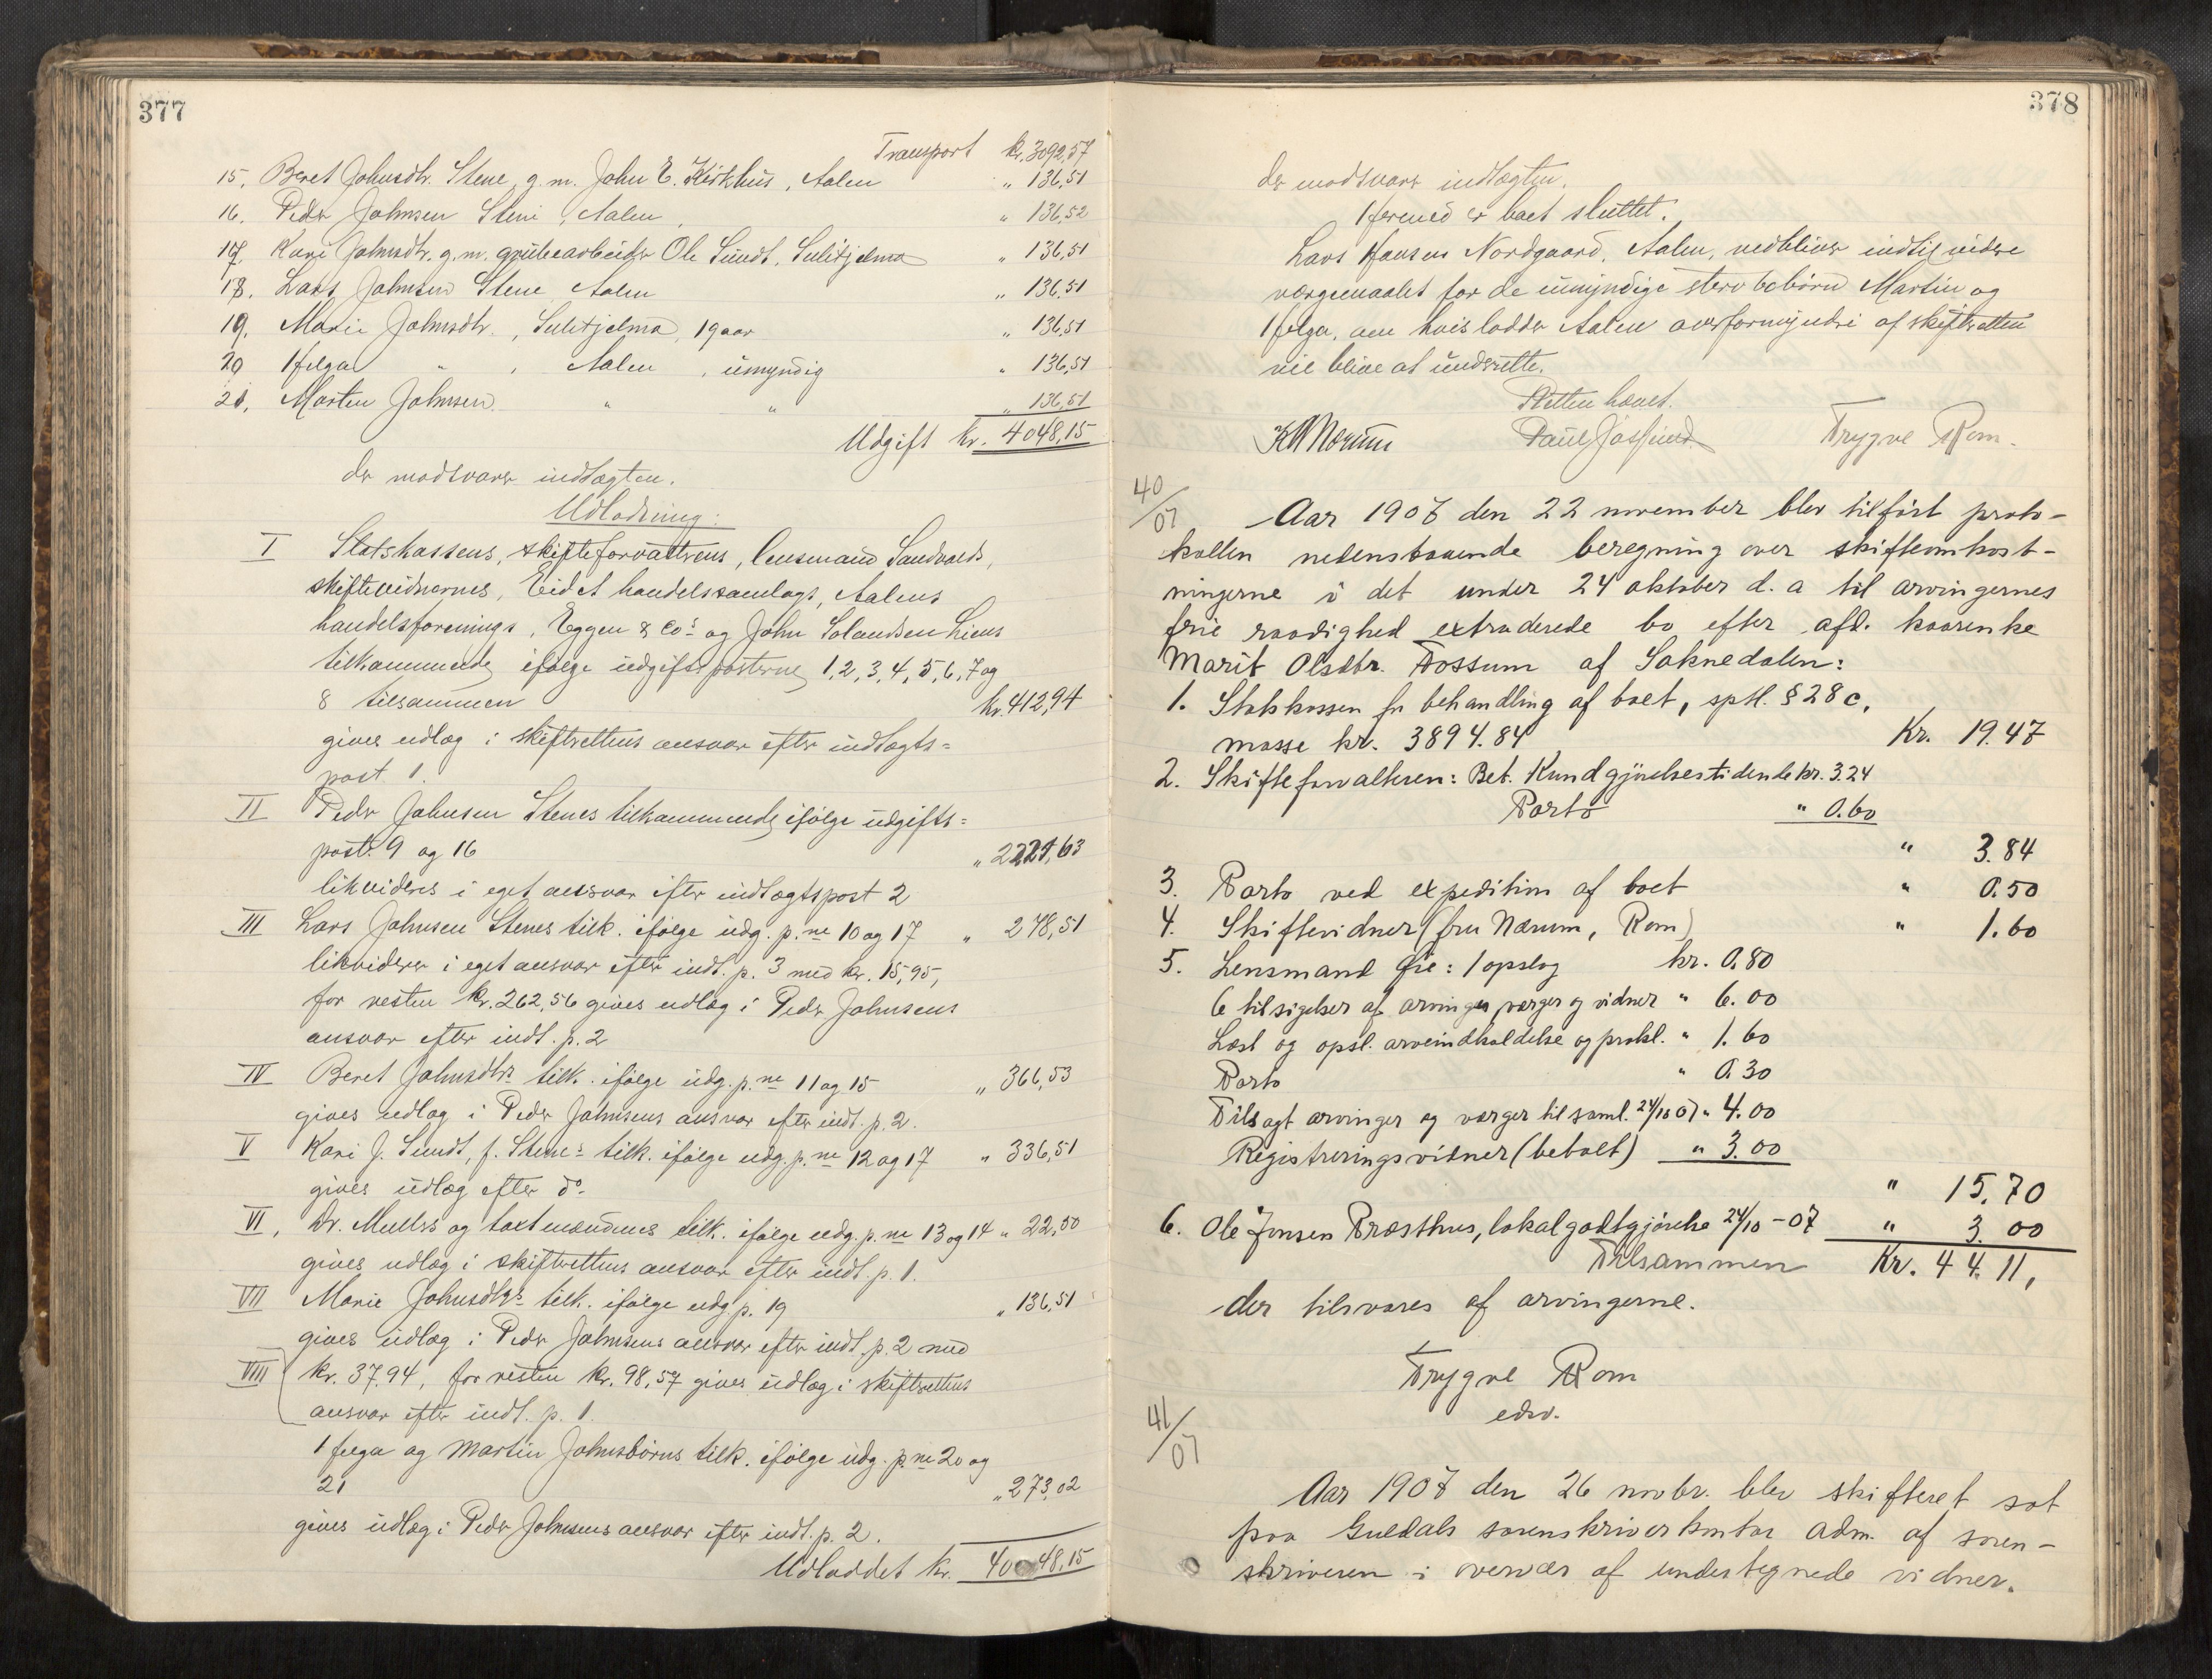 377
Transport kr. 3092,57
15, Beret Johnsdtr. Stene, g. m. John E. Kirkhus, Aalen " 136,51
16. Peder Johnsen Stene, Aalen " 136,52
17. Kari Johnsdtr. g. m. grubearbeider Ole Sundt, Sulitjelma " 136,51
18. Lars Johnsen Stene Aalen " 136,51
19. Marie Johnsdtr., Sulitjelma, 19 aar " 136,51
20 Helga " , Aalen , umyndig " 136,51
21, Morten Johnsen " " " 136,51
Udgift kr. 4048,15
der modsvarer indtægten.
Udlodning:
I Statskassens, skifteforvalterens, lensmand Sandvolds,
skiftevidnernes, Eidet handelssamlags, Aalens
handelsforenings, Eggen & Cos og John Solandsen Liens
tilkommende ifølge udgiftsposterne 1, 2, 3, 4, 5, 6, 7 og
8 tilsammen kr. 412,94
gives udlæg i skifterettens ansvar efter indtægts=
post 1.
II Peder Johnsen Stenes tilkommende ifølge udgifts=
post. 9 og 16 " 2221,63
likvideres i eget ansvar efter indtægtspost 2
III Lars Johnsen Stenes tilk. ifølge udg. p. ne 10 og 17 " 278,51
likviderer i eget ansvar efter indt. p. 3 med kr. 15,95,
for resten kr. 262,56 gives udlæg i Peder Johnsens
ansvar efter indt. p. 2
IV Beret Johnsdtrs tilk. ifølge udg. p. ne 11 og 15 " 366,53
gives udlæg i Peder Johnsens ansvar efter indt. p. 2.
V Kari J. Sundt, f. Stenes tilk. ifølge udg. p. ne 12 og 17 " 336,51
gives udlæg efter do.
VI, Dr. Mullers og taxtmændenes tilk. ifølge udg. p. ne 13 og 14 " 22,50
gives udlæg i skifterettens ansvar efter indt. p. 1.
VII Marie Johnsdtrs tilk. ifølge udg. p. 19 " 136,51
gives udlæg i Peder Johnsens ansvar efter indt. p. 2 med
VIII kr. 37.94, for resten kr. 98,57 gives udlæg i skifterettens
ansvar efter indt. p. 1.
Helga og Martin Johnsbørns tilk. ifølge udg. p. ne 20 og
21 " 273,02
gives udlæg i Peder Johnsens ansvar efter indt. p. 2.
Udloddet kr. 4048,15
378
der modsvarer indtægten.
Hermed er boet sluttet.
Lars Hansen Nordgaard, Aalen, vedbliver indtil videre
værgemaalet for de umyndige stervbobørn Martin og
Helga, om hvis lodder Aalen overformynderi af skifteretten
vil blive at underrette.
Retten hævet.
K Nærum Paul Jossund Trygve Rom.
40/07
Aar 1907 den 22 november blev tilført proto-
kollen nedenstaaende beregning over skifteomkost-
ningerne i det under 24 oktober d. a til arvingernes
frie raadighed extraderede bo efter afd. kaarenke
Marit Olsdtr. Fossum af Soknedalen:
1. Statskassen for behandling af boet, sptl. § 28 c,
masse kr. 3894.84 Kr. 19.47
2. Skifteforvalteren: Bet. Kundgjørelsestidende kr. 3.24
Porto " 0.60
" 3.84
3. Porto ved expedition af boet " 0.50
4. Skiftevidner (fru Nærum, Rom) " 1.60
5. Lensmand Øie: 1 opslag kr. 0.80
6 tilsigelser af arvinger værger og vidner " 6.00
Læst og opsl. arveindkaldelse og prokl. " 1.60
Porto " 0.30
Tilsagt arvinger og værger til saml. 24/10 07 " 4.00
Registreringsvidner (betalt) " 3.00
" 15.70
6. Ole Jonsen Præsthus, lokalgodtgjørelse 24/10-07 " 3.00
Tilsammen Kr. 44.11,
der tilsvares af arvingerne.
Trygve Rom
edsv.
41/07
Aar 1907 den 26 novbr. blev skifteret sat
paa Guldals sorenskriverkontor adm. af soren-
skriveren i overvær af undertegnede vidner.